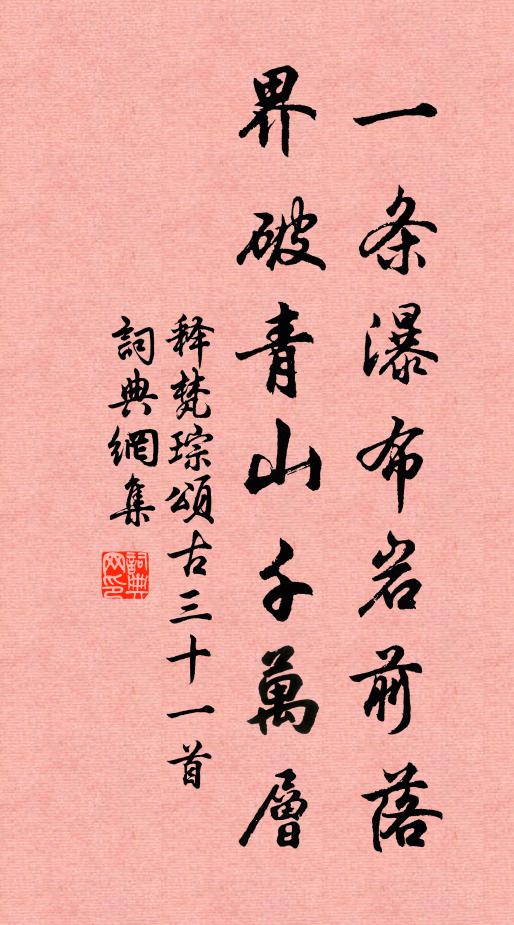 一条瀑布岩前落
界破青山千萬層
释梵琮頌古三十一首
詞典網集
詞典網印